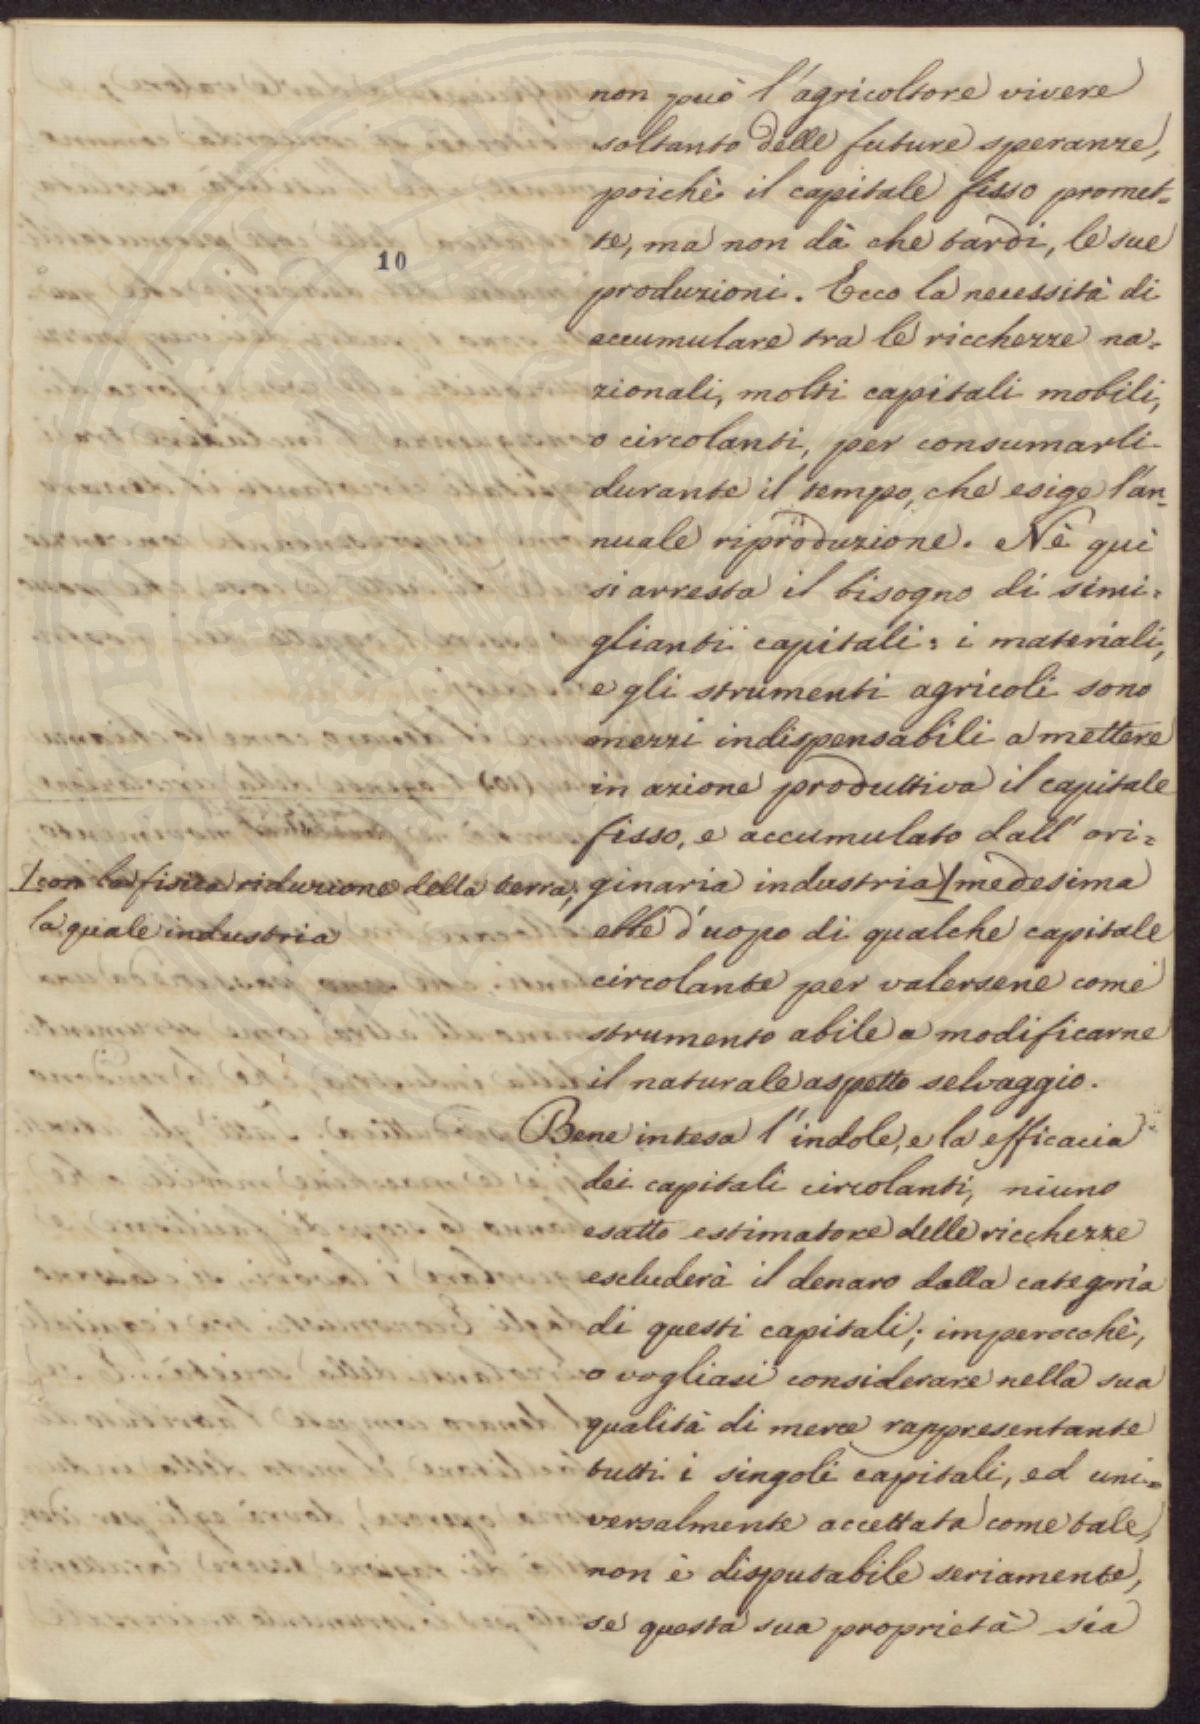 non può l'agricoltore vivere
soltanto delle future speranze,
poichè il capitale fisso promet=
te, ma non dà che tardi, le sue
10
produzioni. Ecco la necessità di
accumulare tra le ricchezze na=
zionali, molti capitali mobili,
o circolanti, per consumarli
durante il tempo, che esige l'an=
nuale riproduzione. Nè qui
si arresta il bisogno di simi=
glianti capitali: i materiali,
e gli strumenti agricoli sono
mezzi indispensabili a mettere
in azione produttiva il capitale
fisso, e accumulato dall' ori=
ginaria industria medesima
con la fisica riduzione della terra,
la quale industria
ebbe d'uopo di qualche capitale
circolante per valersene come
strumento abile a modificarne
il naturale aspetto selvaggio.
Bene intesa l'indole, e la efficacia
dei capitali circolanti, niuno
esatto estimatore delle ricchezze
escluderà il denaro dalla categoria
di questi capitali; imperocchè,
o vogliasi considerare nella sua
qualità di merce rappresentante
tutti i singoli capitali, ed uni=
versalmente accettata come tale,
non è disputabile seriamente,
se questa sua proprietà sia